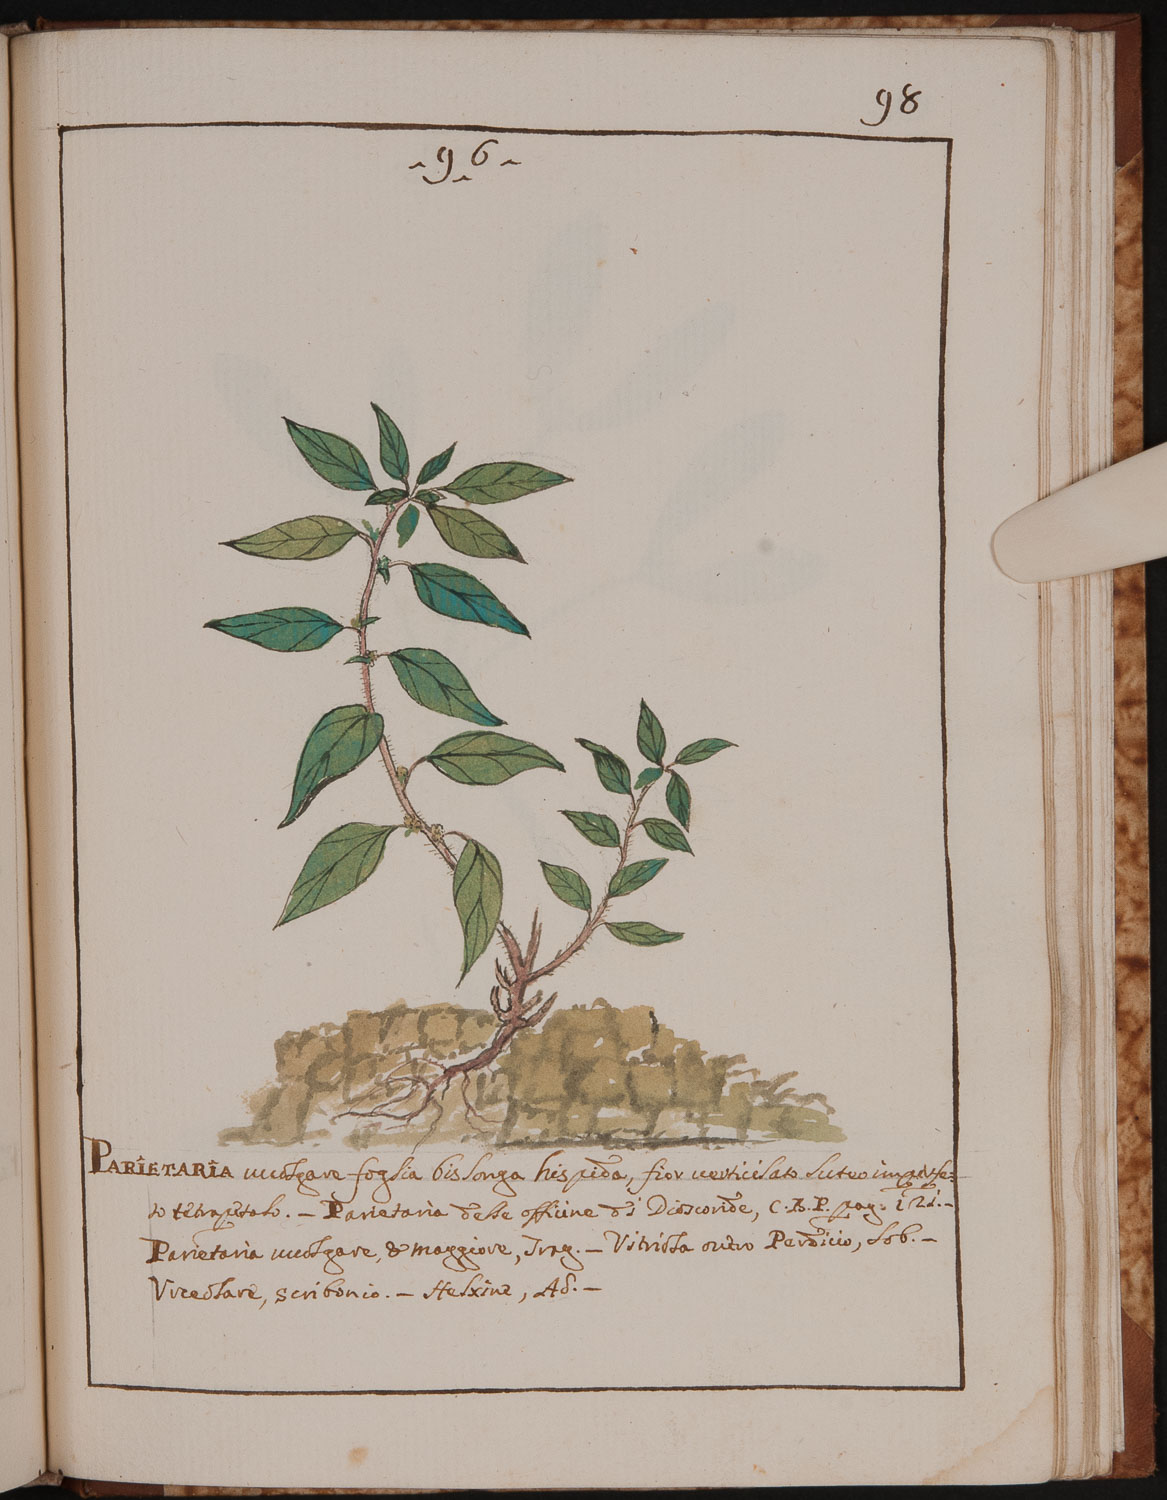 98
96
PARIETARIA uuolgare foglia bislonga hispida, fior uerticilato luteo imperfe=
to tetrapetalo. – Parietaria delle officine di Dioscoride, C.B.P. pag: 121. –
Parietaria uuolgare, & maggiore, Trag. – Vitriola ouero Perdicio, Lob. –
Vrceolare, scribonio. – Helxine, Ad. –